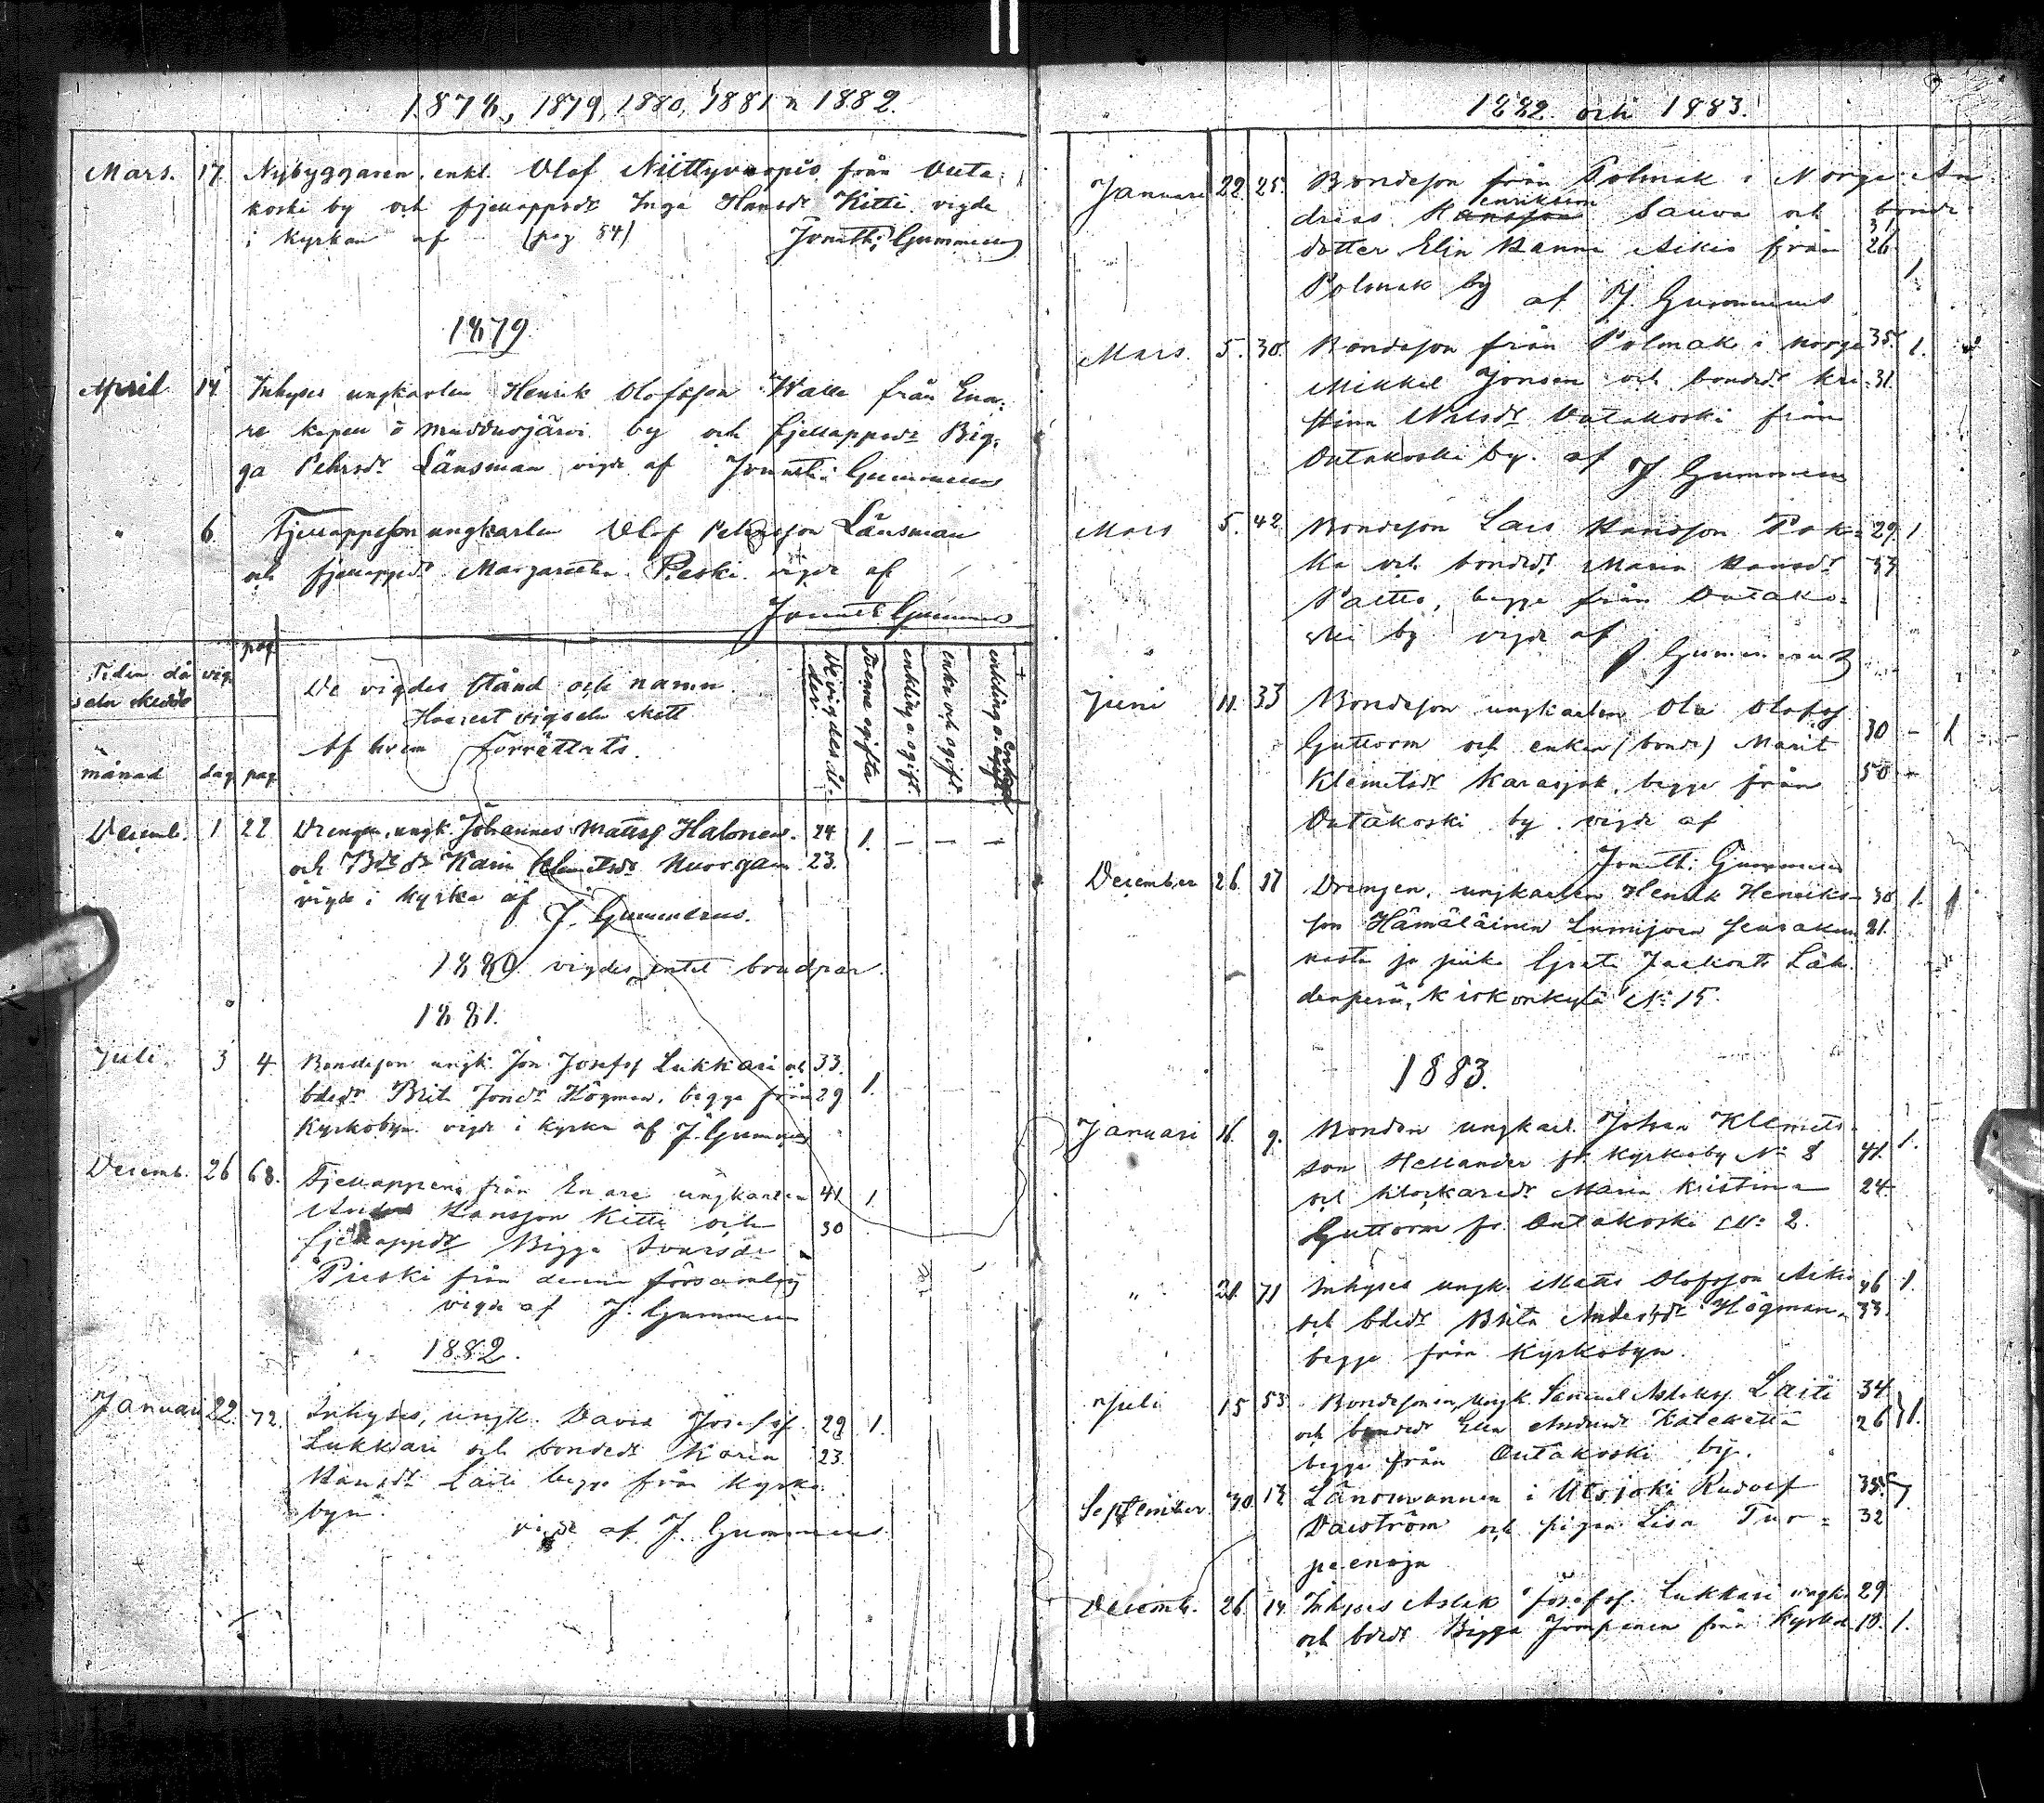 1878, 1879, 1880, 1881 n 1882.
Mars. 17. Nybyggaren, enkl. Olof Niittyvuopio från Outa-
koski by och fjellappsdr Inga Hansdr Kitti vigde
i Kyrkan af (pag 84) Jonath: Gummerus
1879.
April 14 Inhyses ungkarlen Henrik Olofsson Walle från Ena-
re kapell o Muddusjärvi by och fjellappsdr Big-
ga Pehrsdr Länsman vigde af Jonath: Gummerus
" 6 Fjellappeson ungkarlen Olof Pehrsson Länsman
och fjellappsdr Margaretha Pieski vigde af
Jonath Gummerus
pag
Tiden då vig-
seln skedde
månad dag pag.
De vigdes stånd och namn.
Hvarest vigseln skett
Af hvem förrättats.
De vigdes ål-
der.
Tvenne ogifta
enkling o ogift.
enka och ogift.
enkling o enka
Decemb. 1 22 Drengen, ungk. Johannes Mattsf Halonen. 24 1. — — —
och Bdedr Karin Klemetsdr Nuorgam 23.
vigde i kyrka af
J. Gummerus.
1880 vigdes intet brudpar.
1881.
Juli 3 4 Bondeson ungk. Jon Josefsf Lukkari och 33.
bdedr Brita Jonsdr Högman, begge från 29 1.
Kyrkobyn vigde i kyrka af J. Gummerus
Decemb. 26 68. Fjellappen från Enare ungkarlen 41 1
Anders Hansson Kitti och 30
fjellappdr Bigga Ivarsdr
Pieski från denna församling
vigde af J. Gummerus
1882.
Januari 22. 72. Inhyses, ungk. David Josefsf. 29 1.
Lukkari och bondedr Karin 23.
Hansdr Laiti begge från Kyrko
byn.
vigde af J. Gummerus.
1882 och 1883.
Januari 22 25. Bondeson från Polmak i Norge An-
enriksson
dreas Hansson Sauva och bonde- 31
dotter Elin Hanna Aikio från 26
Polmak by 1.
af J. Gummerus
Mars. 5. 30. Bondeson från Polmak i Norge 35. 1.
Mikkel Jonsen och bondedr Kri- 31.
stina Nilsdr Outakoski från
Outakoski by. af J Gummerus
Mars 5. 42 Bondeson Lars Hansson Pok- 29. 1
ka och bondedr Maria Hansdr 33
Paltto, begge från Outako-
ski by vigde af
J Gummerus
Juni 11. 33 Bondeson ungkarlen Ola Olofsf
Guttorm och enkan (bonde) Marit 30 - 1
Klemetsdr Karasjok, begge från 50 -
Outakoski by vigde af
Jonath: Gummerus
December 26. 37 Drengen, ungkarlen Henrik Henriks- 30 1. 1
son Hämäläinen Lumijoen seurakun 21.
nasta ja piika Greta Lah-
denperä, Kirkonkylä No 15.
1883.
Januari 16. 9. Bonden ungkarl. Johan Klemets-
son Hellander fr. Kyrkoby No 8 41. 1.
och klockaredr Maria Kristina 24
Guttorm fr. Outakoski No 2.
" 21. 71 Inhyses ungk. Matts Olofsson Aikio 46 1.
och bdedr Brita Andersdr Högman 33.
begge från Kyrkobyn.
Juli 15 53 Bondesonen, ungk. Samuel Aslaksf Laiti 34
och bondedr Elin 26 } 1.
begge från Outakoski by.
September 30. 12 Länsmannen i Utsjoki Rudolf 35.
och pigan Lisa Tur- 32
peenoja
Decemb. 26. 14. Inhyses Aslak Josefsf. Lukkari ungk. 29
och bdedr Bigga Jomppanen från Kyrkob 18. 1.